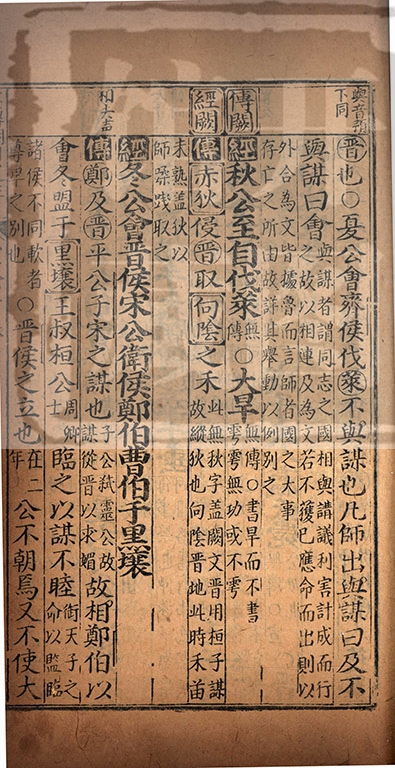 與音預
下同
晉也○夏公會齊侯伐萊不與謀也凡師出與謀曰及不
與謀曰會
與謀者謂同志之國相與講議利害計成而行
之故以相連及為文若不獲已應命而出則以
外合為文皆據魯而言師者國之大事
存亡之所由故詳其舉動以例別之
傳闕
經秋公至自伐萊
無
傳
○大旱
無傳○書旱而不書
雩雩無功或不雩
經闕
傳赤狄侵晉取向陰之禾
此無秋字蓋闕文晉用桓子謀
故縱狄也向陰晉地此時禾苗
未熟蓋狄以
師蹂踐取之
經冬公會晉侯宋公衛侯鄭伯曹伯于黑壤
相去声
傳鄭及晉平公子宋之謀也
子公弒靈公故
謀從晉以求媚
故相鄭伯以
會冬盟于黑壤王叔桓公
周卿
士
臨之以謀不睦
銜天子之
命以監臨
諸侯不同歃者
尊卑之別也
○晉侯之立也
在二
年
公不朝焉又不使大